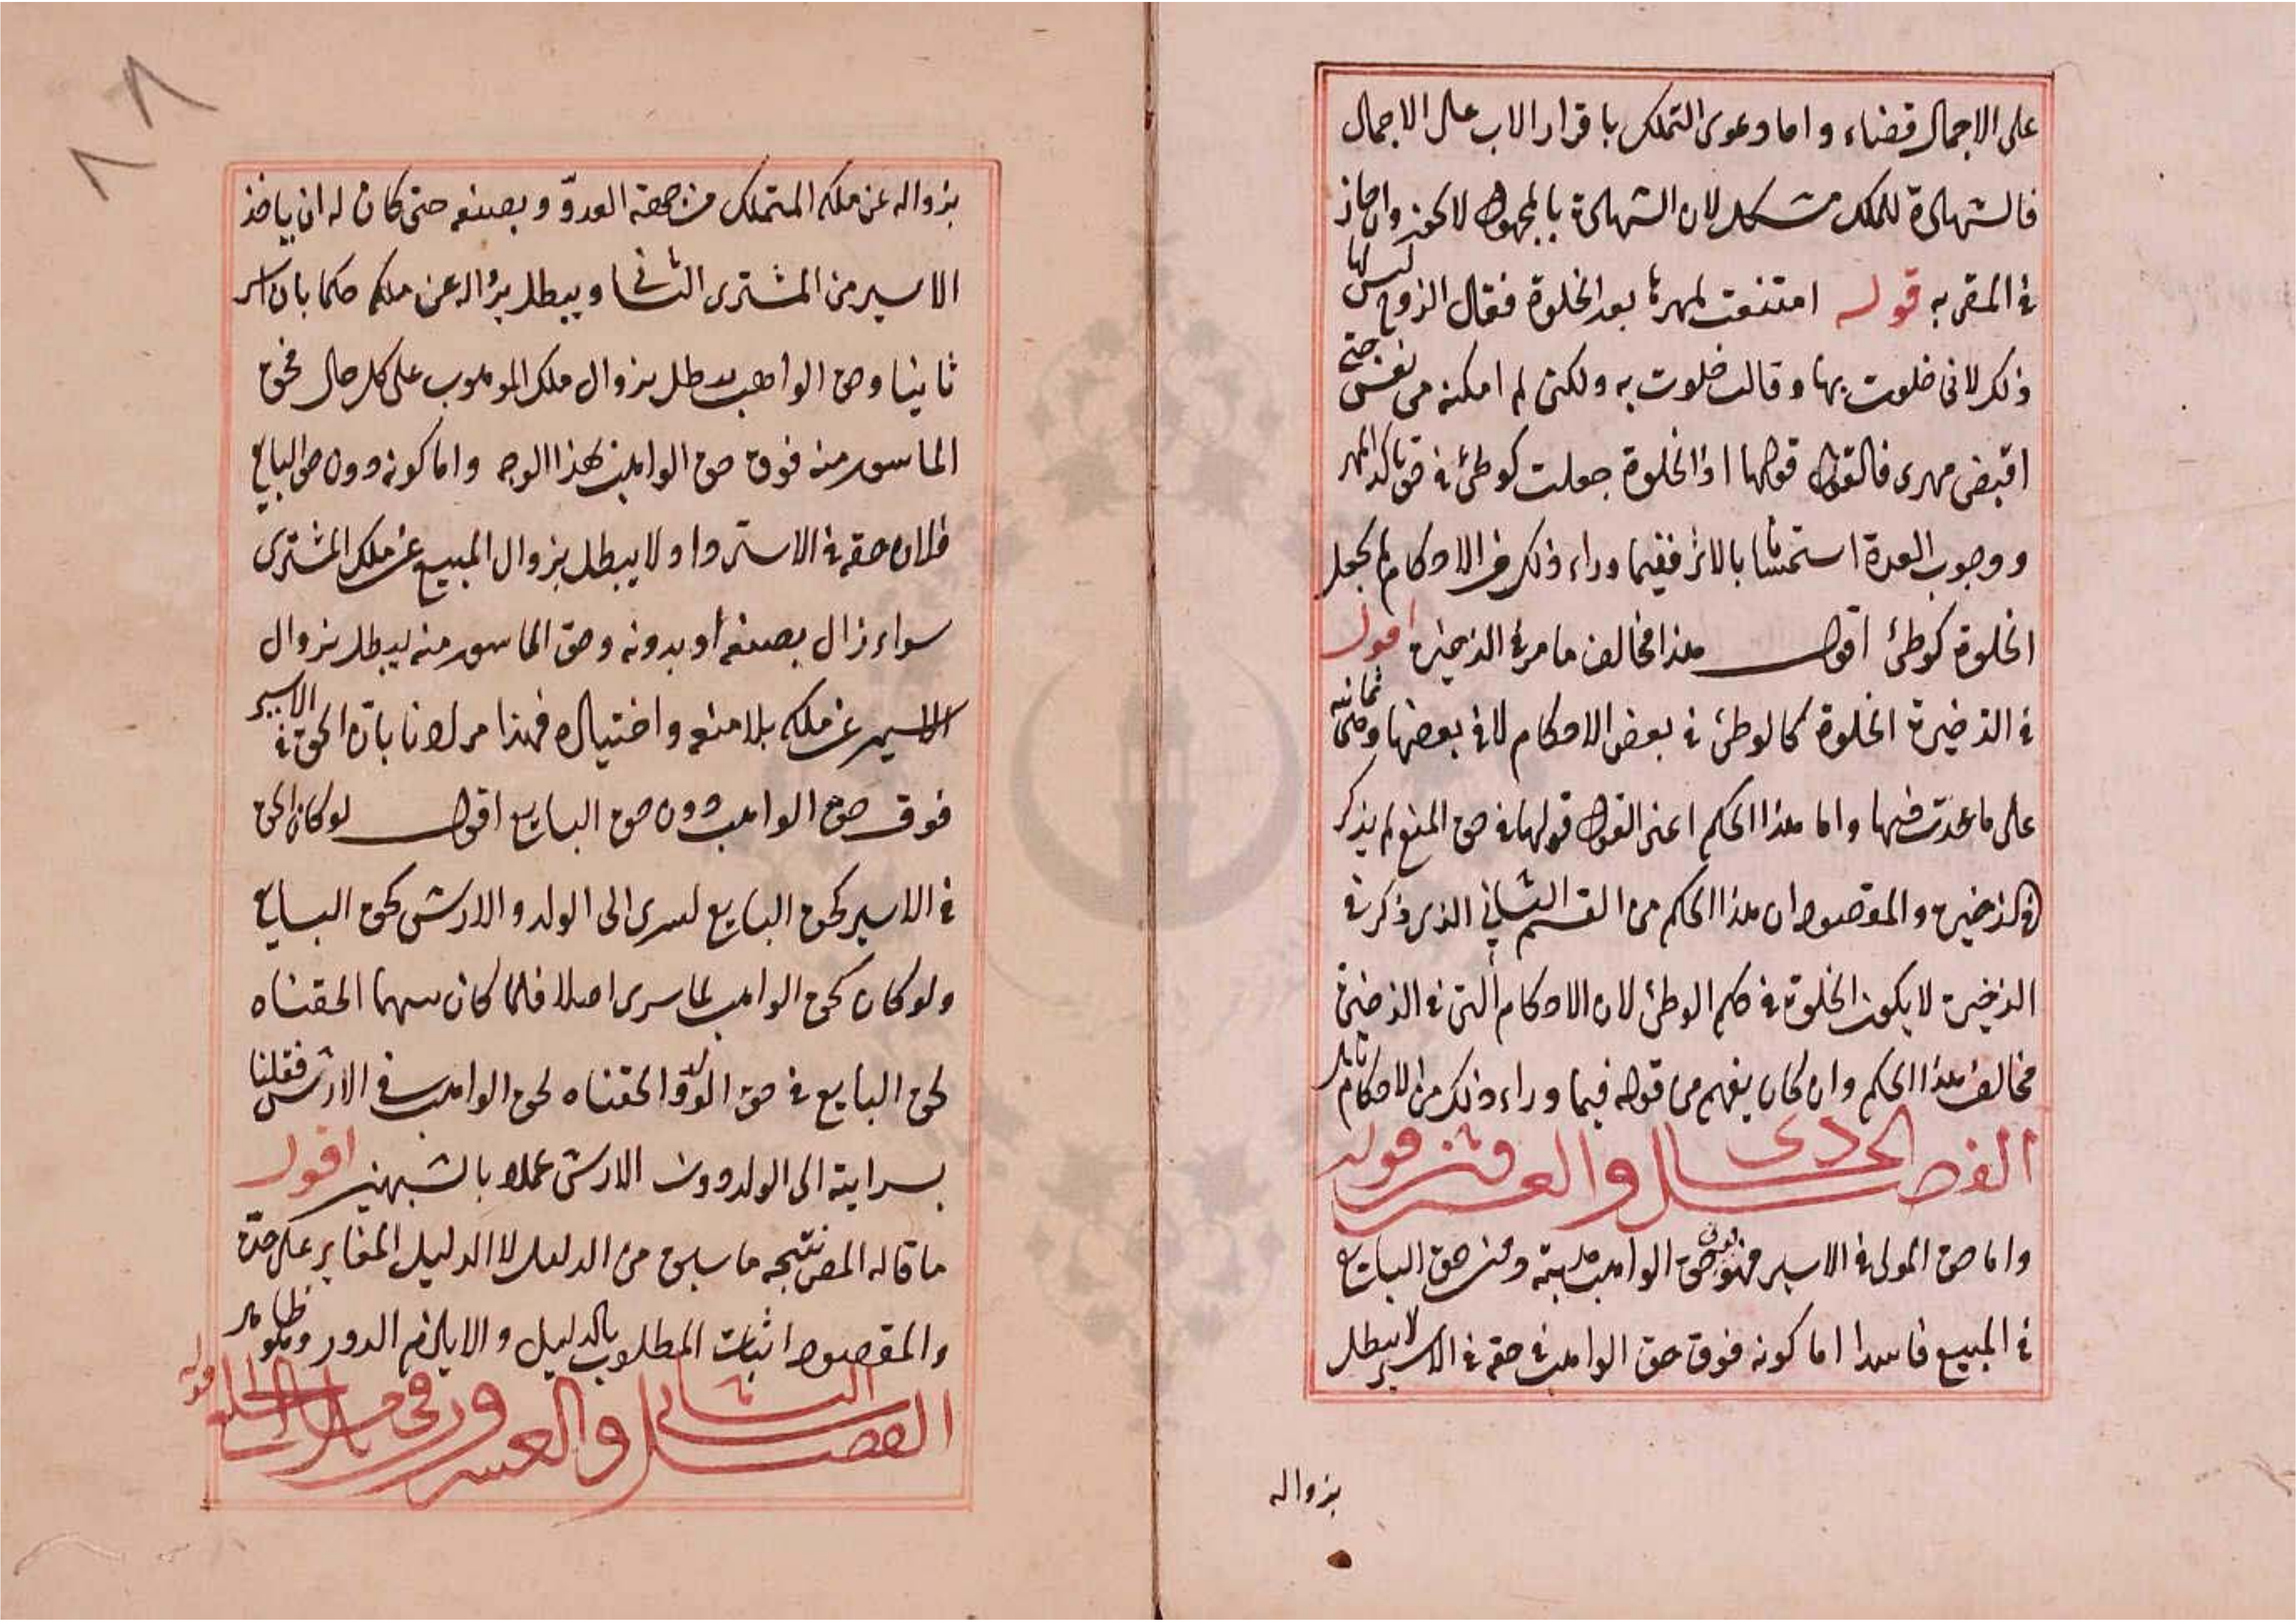 على الاجمال قضاء واما دعوى التملك باقرار الاب على الاجمال
فالشهادة للملك مشكل لان الشهادة بالمجهول لا تجوز وان جاز
في المقر به قوله امتنعت لمهرها بعد الخلوة فقال الزوج ليس لها
ذلك لاني خلوت بها وقالت خلوت به ولكن لم امكنه من نفسي حتى
اقبض مهرى فالقول قولها اذ الخلوة جعلت كوطئ في حق تاكد المهر
ووجوب العدة استحسانا بالاثر ففيما وراء ذلك من الاحكام لم يجعل
الخلوة كوطئ اقول هذا مخالف ما مر في الذخيرة اقول
في الذخيرة الخلوة كالوطئ في بعض الاحكام لا في بعضها وهي ثمانية
على ما عدت فيها واما هذا الحكم اعني القول قولها في حق المنع لم يذكر
في الذخيرة والمقصود ان هذا الحكم من القسم الثاني الذى ذكر في
الذخيرة لا يكون الخلوة في حكم الوطئ لان الاحكام التى في الذخيرة
مخالف هذا الحكم وان كان يفهم من قوله فيما وراء ذلك من الاحكام
الفصل الحادى والعشرون قوله
واما حق المولى في الاسير فهو فوق حق الواهب هبته ودون حق البايع
في المبيع فاسدا اما كونه فوق حق الواهب في حقه في الاسير لا يبطل
بزواله
٨٨
بزواله عن ملك المتملك من جهة العدوّ وبصنعه حتى كان له ان ياخذ
الاسير من المشترى الثانى ويبطل بزواله عن ملكه حكما بان اسر
ثانيا وحق الواهب يبطل بزوال ملك الموهوب على كل حال فحق
الماسور منه فوق حق الواهب لهذا الوجه واما كونه دون حق البايع
فلان حقه في الاسترداد لا يبطل بزوال المبيع عن ملك المشترى
سواء زال بصنعه او بدونه وحق الماسور منه يبطل بزوال
الاسير عن ملكه بلا صنعه واختياره فهذا مرادنا بان الحق في الاسير
فوق حق الواهب دون حق البايع اقول لو كان الحق
في الاسير كحق البايع لسرى الى الولد والارش كحق البايع
ولو كان كحق الواهب لما سرى اصلا فلما كان بينهما الحقناه
لحق البايع في حق الولد والحقناه لحق الواهب في الارش فقلنا
بسرايته الى الولد دون الارش عملا بالشبهين اقول
ما قاله المص نتيجة ما سبق من الدليل لا الدليل المغاير على حدة
والمقصود اثبات المطلوب بالدليل والا يلزم الدور وهو ظاهر
الفصل الثانى والعشرون في مسائل الخلع قوله